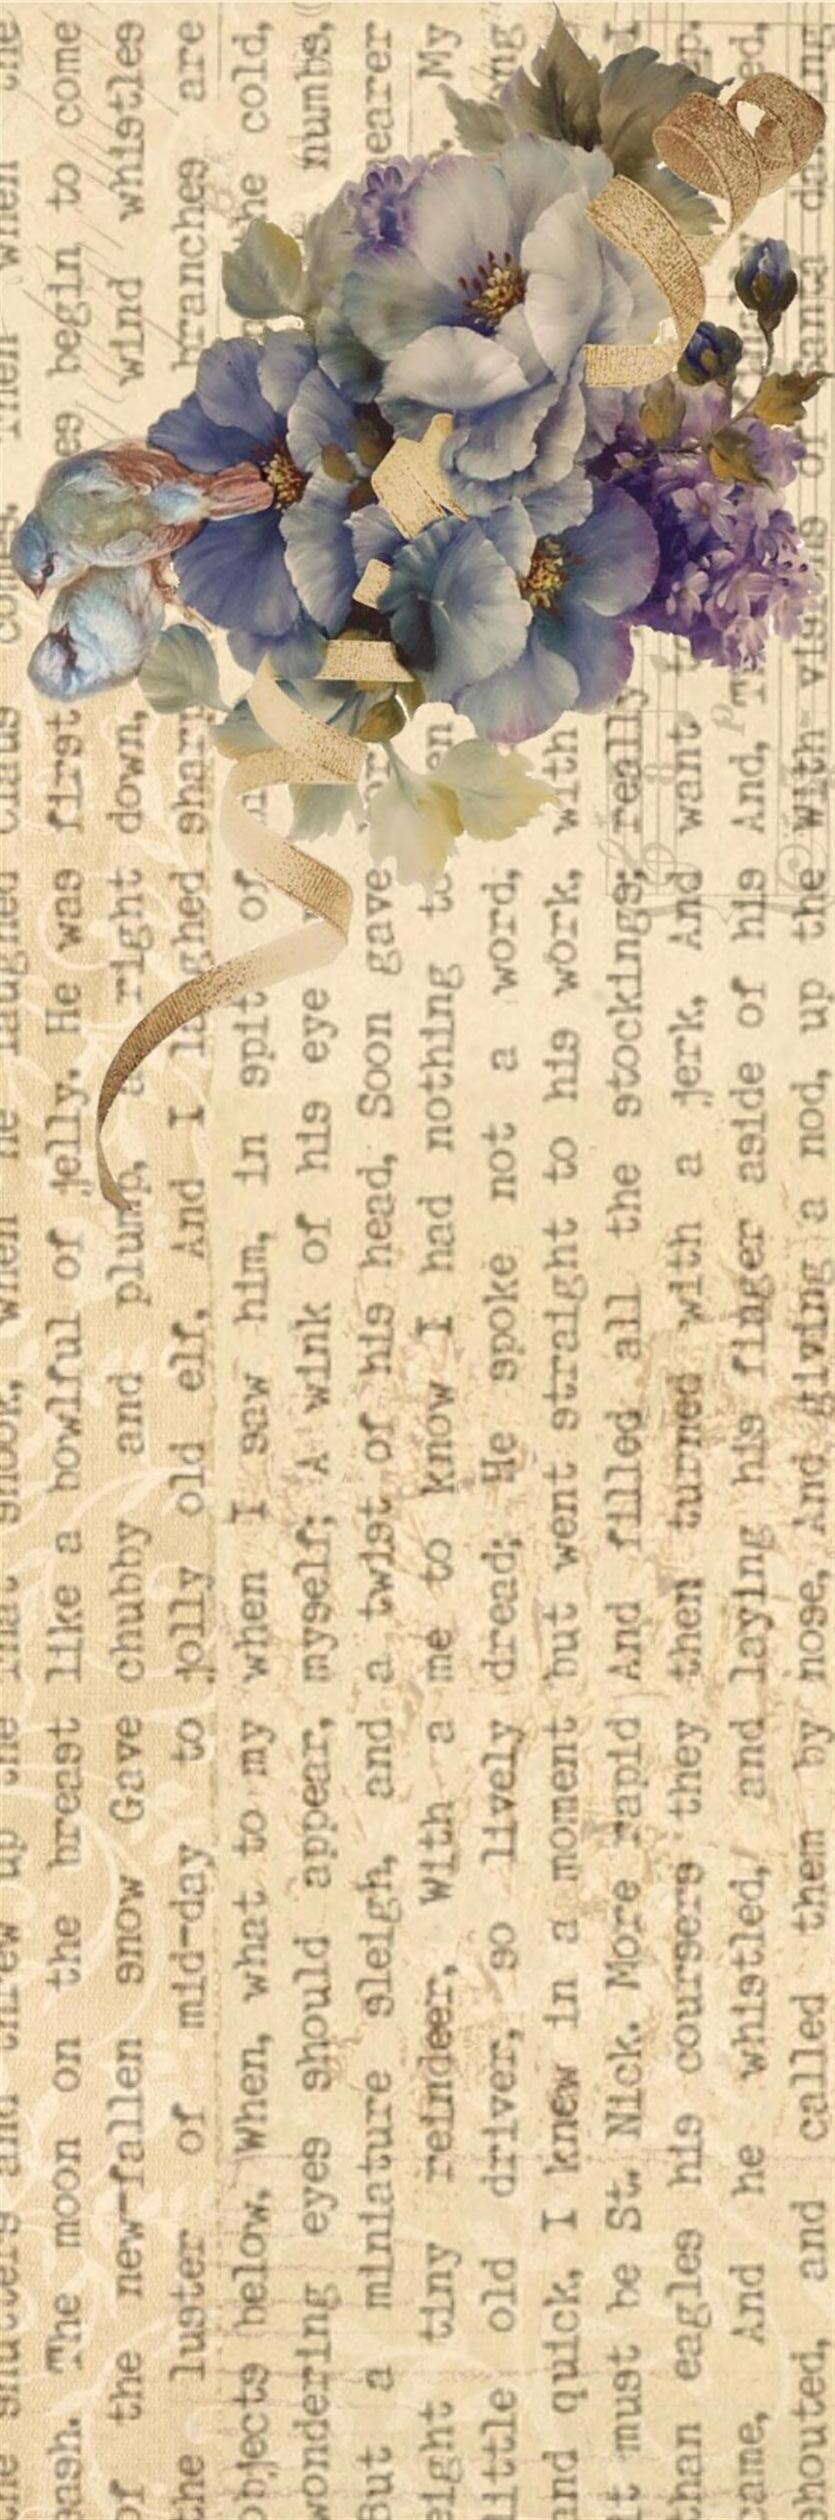 shutters and threw up the That shook, when he laughed Claus Then when the
ash. The moon on the breast like a bowlful of jelly. He was first begin to come
of the new-fallen snow Gave chubby and plump, a right down, wind whistles
the luster of mid-day to jolly old elf, And I laughed sharp branches are
objects below, When, what to my when I saw him, in spit of the cold,
wondering eyes should appear, myself; A wink of his eye numbs,
But a miniature sleigh, and a twist of his head, Soon gave
eight tiny reindeer, With a me to know I had nothing to My
little old driver, so lively dread; He spoke not a word,
and quick, I knew in a moment but went straight to his work, with
it must be St. Nick. More rapid And filled all the stockings; really I
than eagles his coursers they then turned with a jerk, And want
ame, And he whistled, and laying his finger aside of his And,
shouted, and called them by nose, And giving a nod, up the With visions of